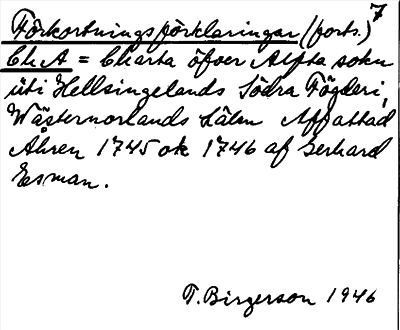 7
Förkortningsförklaringar (forts.)
Ch A = Charta öfver Alfta sokn
uti Hellsingelands Södra Fögderi,
Wästernorlands Lähn Affattad
Åhren 1745 ok 1746 af Gerhard
Esman.
T. Birgerson 1946